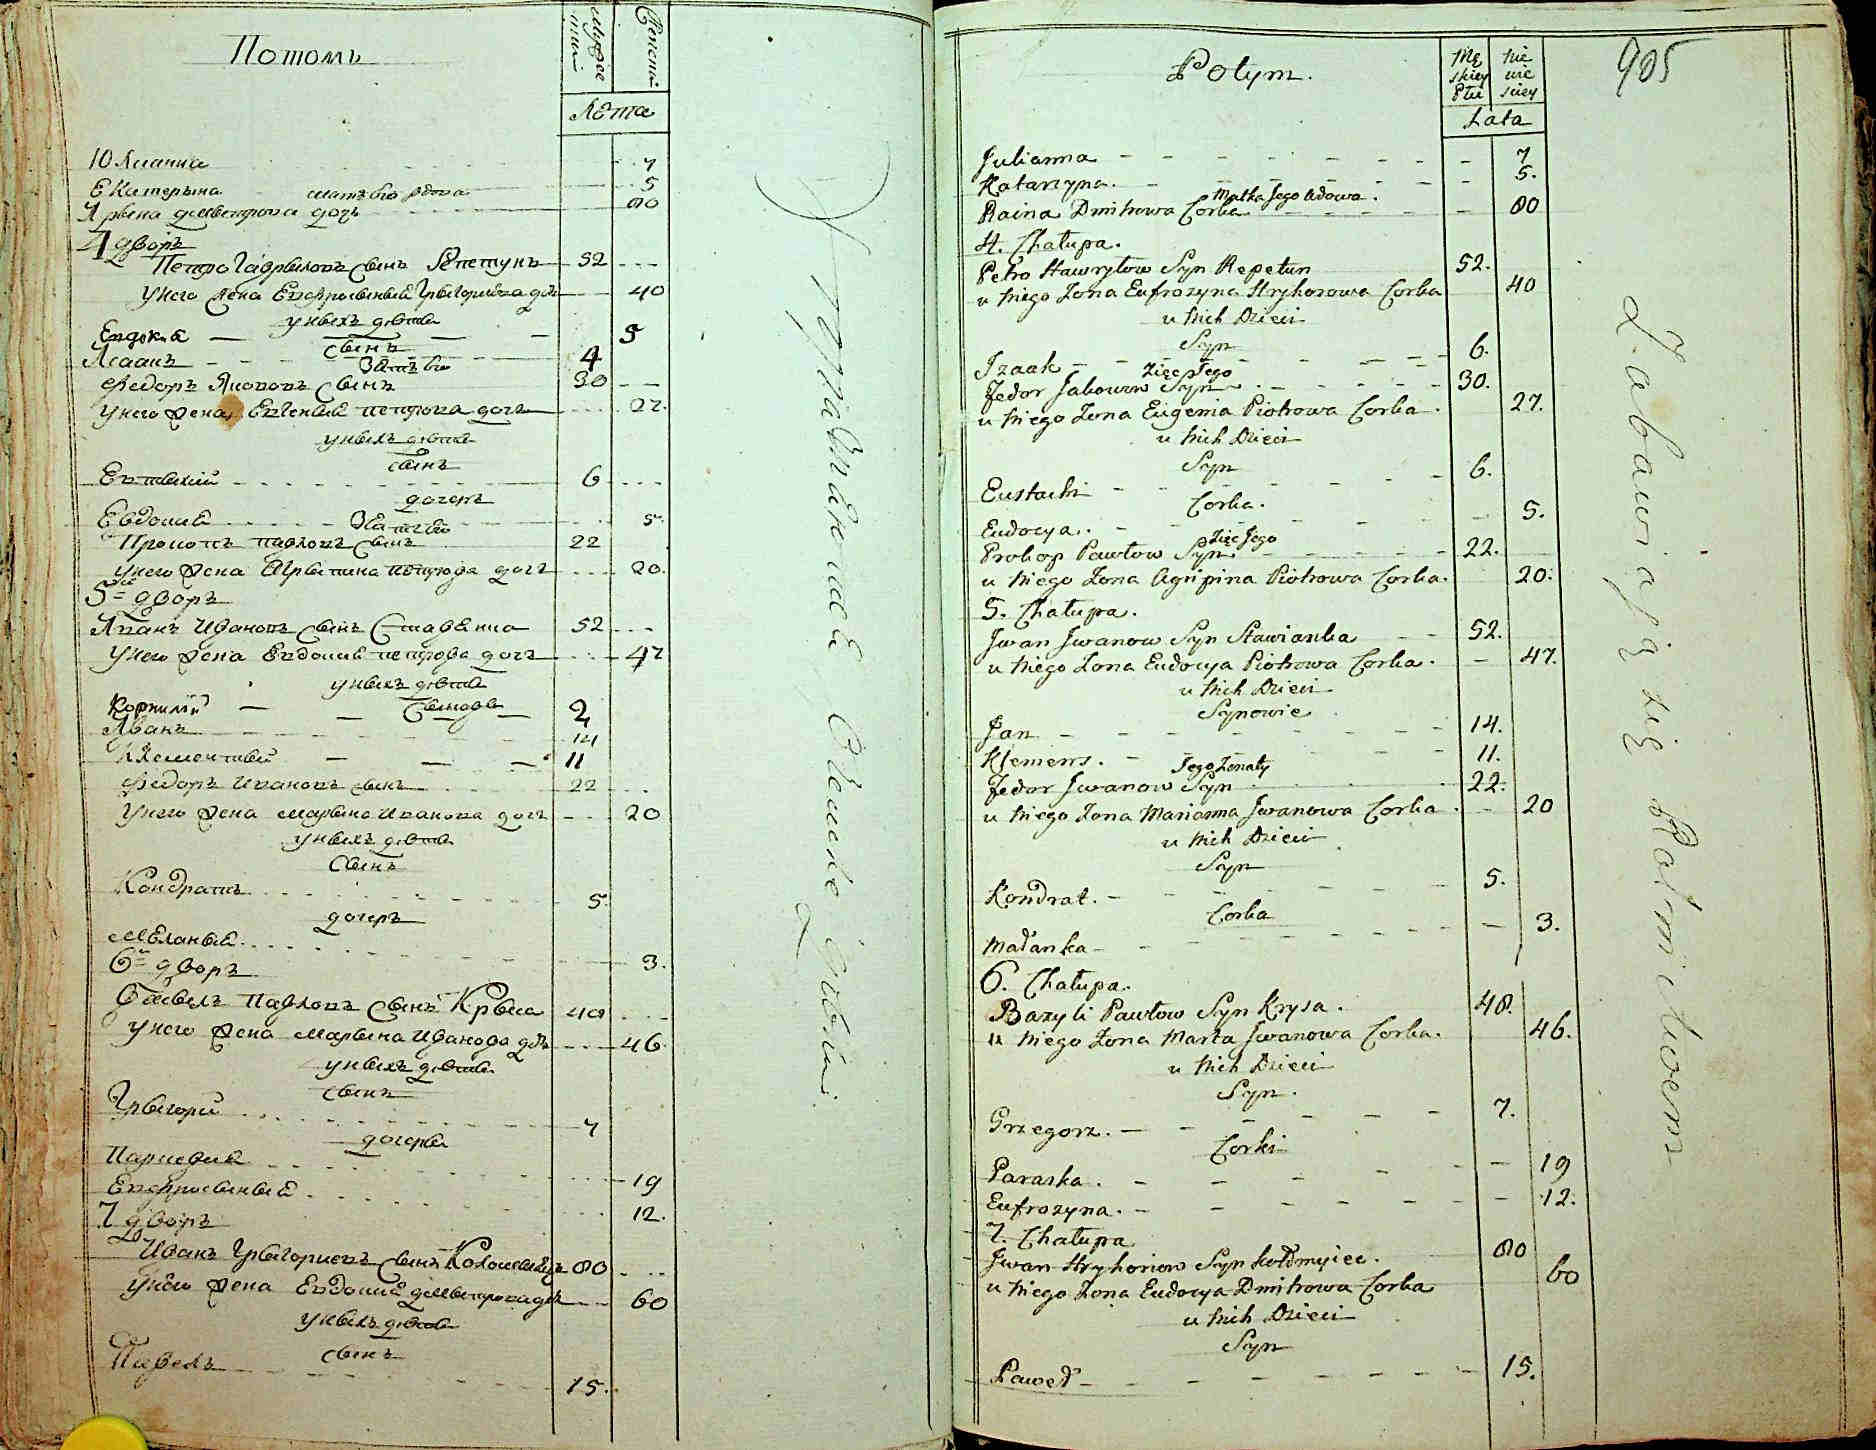 Потомъ
Женскій
Лѣта
Юлианна 7
Екатерына 5
мать его вдова
Ярына Дмытрова дочъ 80
4 дворъ
Петро Гаврыловъ сынъ Репетунъ 52
у него жена Евфросыныя Грыгорыева дочь 40
у ныхъ дѣты
Евдокия 5
сынъ
Исаакъ 4
Зять его
Федоръ Якововъ сынъ 30
у него жена Евгеныя петрова дочъ 27.
у ныхъ дѣты
сынъ
Евстахий 6
дочеръ
Евдокия 5
Зять его
Прокопъ павловъ сынъ 22
у него жена Агрыпина петрова дочъ 20.
5й дворъ
Иванъ Ивановъ сынъ Ставянка 52
у него жена Евдокия петрова дочъ 47
у ныхъ дѣты
сынове
Корнилий 2
Иванъ 14
Клементый 11
Федоръ Ивановъ сынъ 22
у него жена Марына Иванова дочъ 20
у ныхъ дѣты
сынъ
Кондратъ 5.
дочеръ
Меланыя 3.
6й дворъ
Василъ Павловъ сынъ Крыса 48
у него жена Марына Иванова дочъ 46.
у ныхъ дѣты
сынъ
Грыгори 7
дочеры
Параскева 19
Евфросыныя 12.
7 дворъ
Иванъ Грыгориевъ сынъ Коломыецъ 80
у него жена Евдокия дмытрова дочъ 60
у ныхъ дѣты
сынъ
Павелъ 15.
905
Potym.
Mę skiey Płci
Nie wie skiey
Lata
Julianna 7
Katarzyna. 5.
Matka Jego wdowa.
Raina Dmitrowa Corka 80
4. Chałupa.
Petro Hawryłow Syn Repetun 52.
u niego Zona Eufrozyna Hryhorowa Corka 40
u nich Dzieci
Syn
Izaak 6.
Zięc Jego
Fedor Jakowow Syn 30.
u niego Zona Eugenia Piotrowa Corka. 27.
u nich Dzieci
Syn
Eustachi 6.
Corka.
Eudocya. 5.
Zięc Jego
Prokop Pawłow Syn 22.
u niego Zona Agripina Piotrowa Corka. 20.
5. Chałupa.
Jwan Jwanow Syn Stawianka 52.
u niego Zona Eudocya Piotrowa Corka. 47.
u nich Dzieci
Synowie
Jan 14.
Klemens. 11.
Jego Zonaty
Fedor Jwanow Syn 22.
u niego Zona Marianna Jwanowa Corka 20
u nich Dzieci
Syn
Kondrat. 5.
Corka
Małanka 3.
6. Chałupa.
Bazyli Pawłow Syn Krysa. 48.
u niego Zona Marta Jwanowa Corka. 46.
u nich Dzieci
Syn.
Grzegorz. 7.
Corki
Paraska. 19
Eufrozyna. 12.
7. Chałupa
Jwan Hryhoriow Syn Kołomyiec. 80
u niego Zona Eudocya Dmitrowa Corka 60
u nich Dzieci
Syn
Paweł 15.
Zabawiają się Rolnictwem